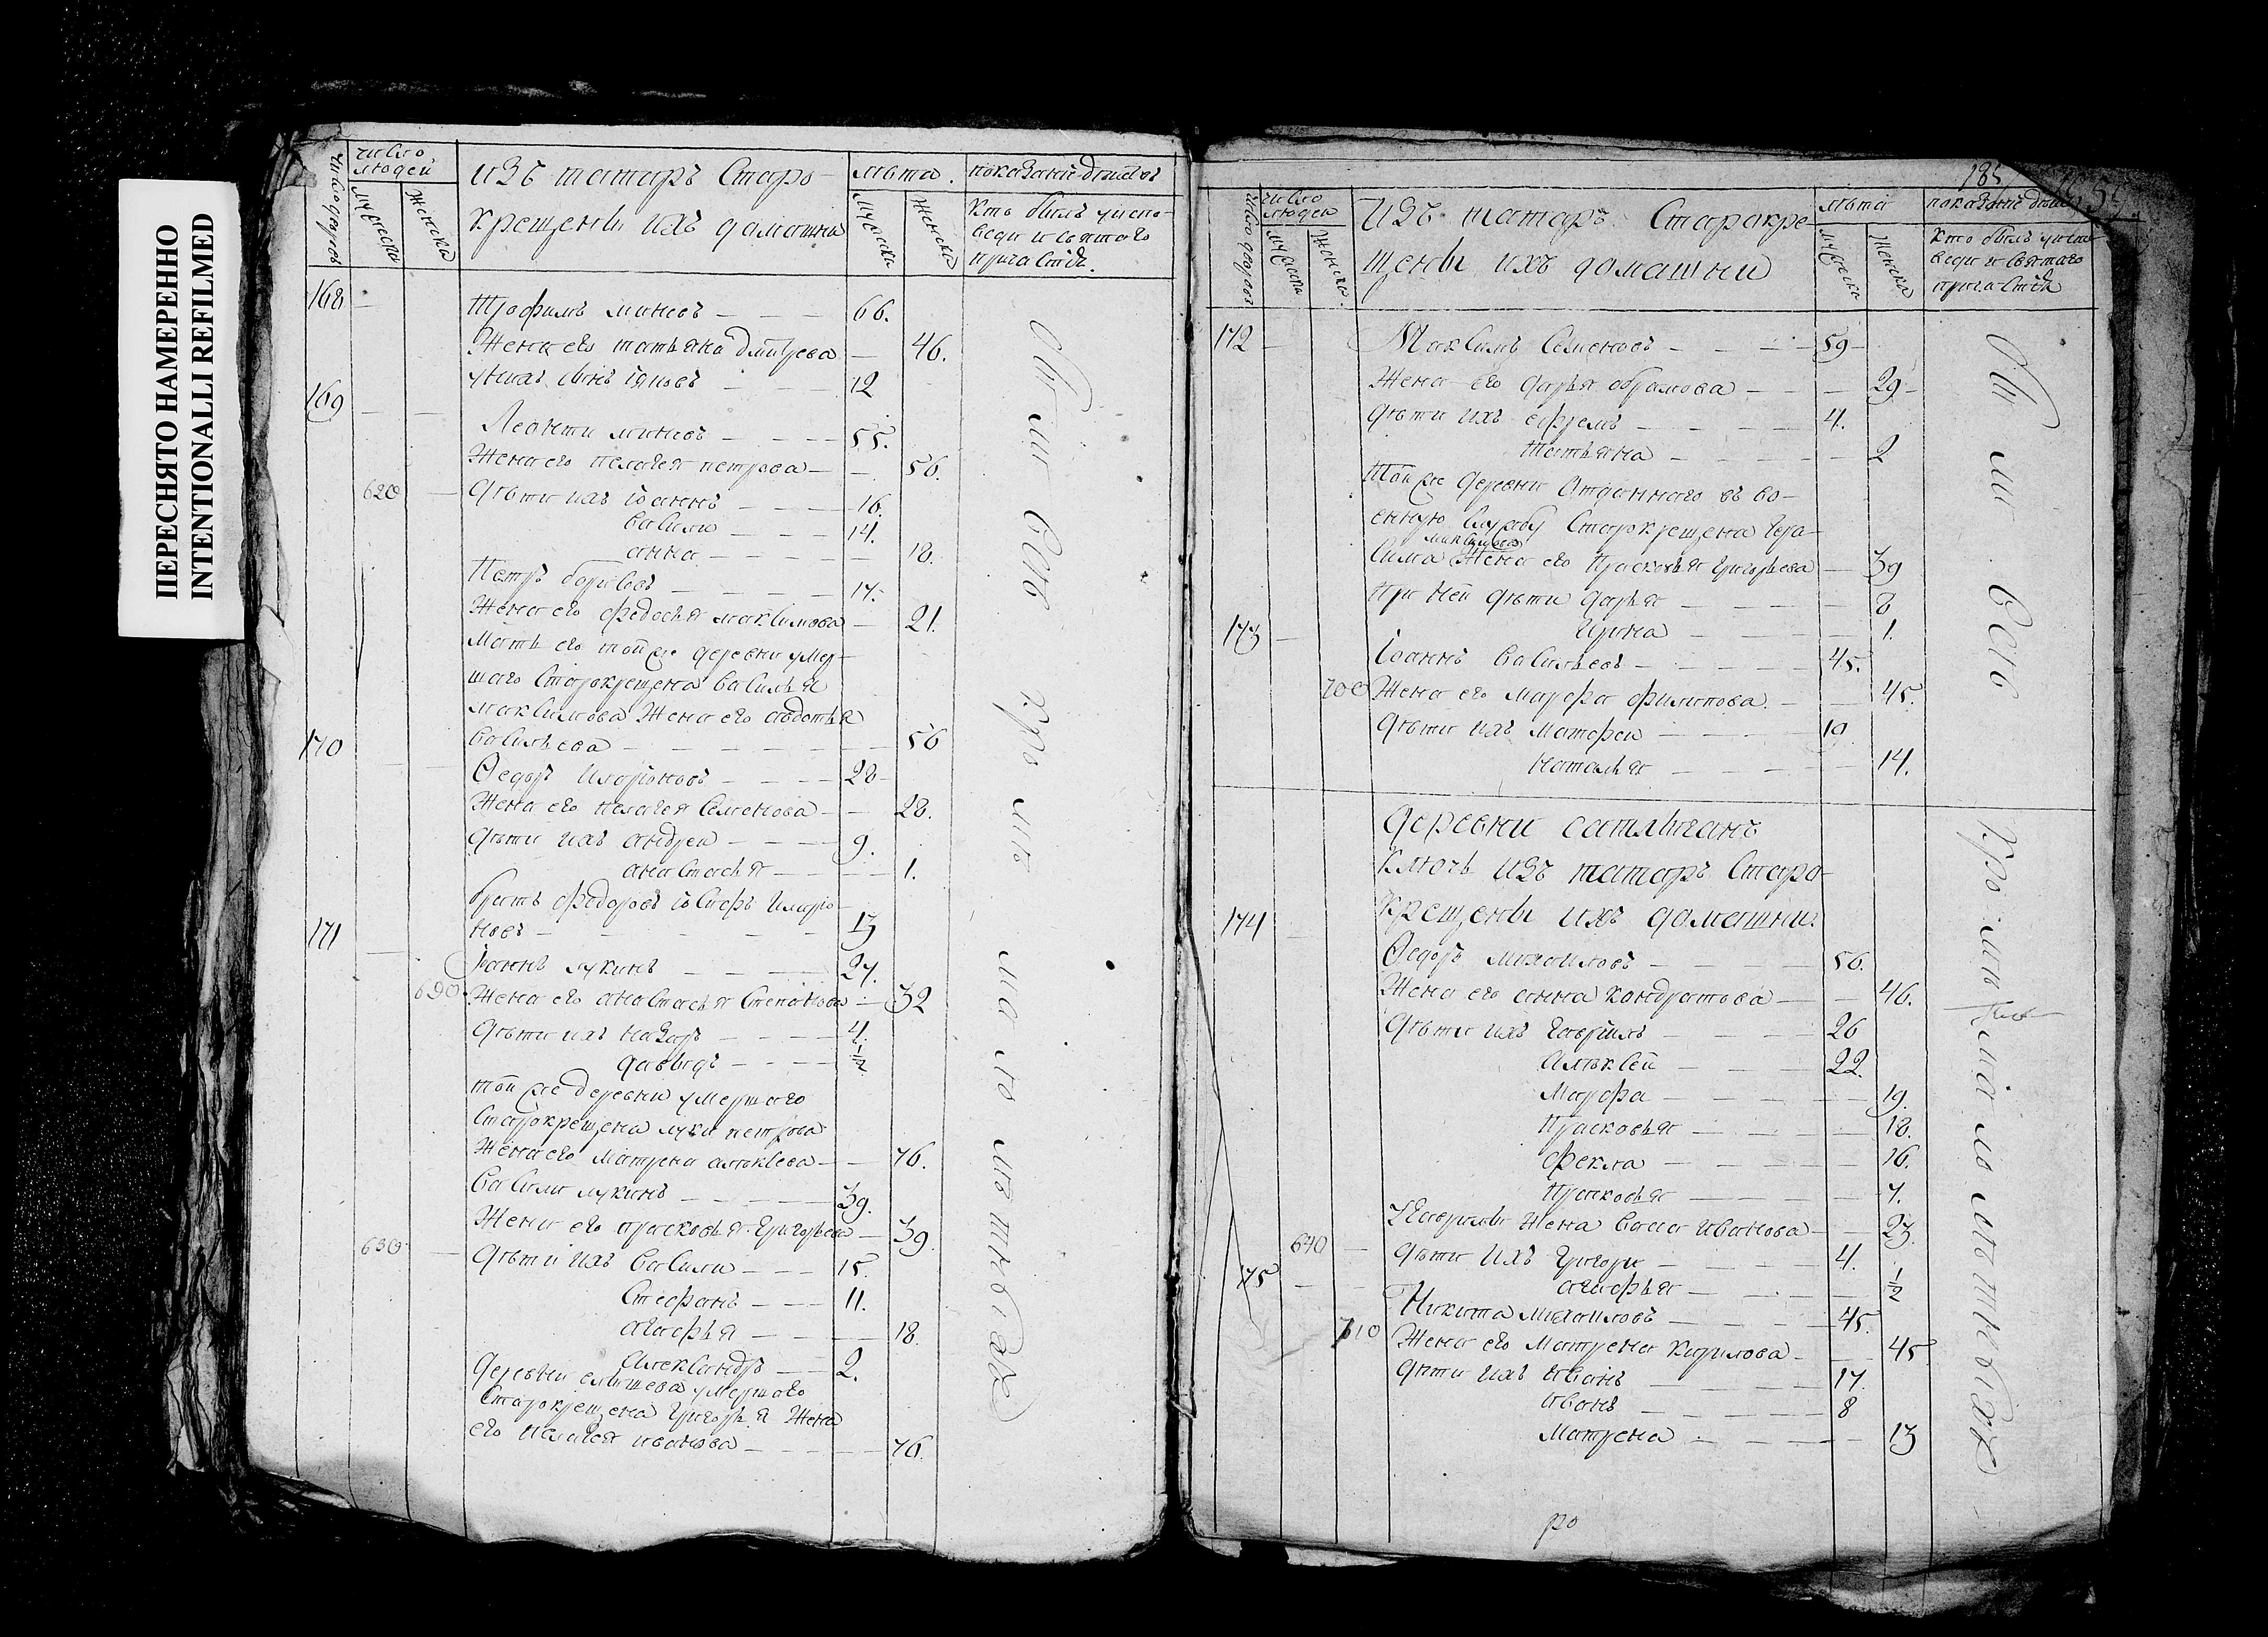 ПЕРЕСНЯТО НАМЕРЕННО
INTENTIONALLI REFILMED
число дворов
число
людей
мужеска
женска
изъ татаръ Старо-
крещены ихъ домашни
лѣта.
мужеска
женска
показанiй дѣйство
кто былъ у испо-
веди и святаго
причастiя.
168
Трофимъ миневъ 66.
Жена его татьяна дмитрева 46.
12
169
Леонти миневъ 55.
Жена его пелагея петрова 56.
620 дѣти ихъ iоаннъ 16.
Васили 14.
анна 18.
Петръ борисовъ 17.
Жена его федосья максимова 21.
Мать его той же деревни умер-
шаго Старокрещена Василья
максимова Жена его авдотья
Васильева 56
170
Ѳедоръ Иларiоновъ 28
Жена его пелагея Семенова 28.
дѣти ихъ андреи 9.
анастасья 1.
братъ федоровъ iосифъ Иларiо-
новъ 13
171
Iоаннъ лукинъ 27.
690 Жена его анастасья Степанова 32
дѣти ихъ назаръ 4.
давыдъ ½
той же деревни умершаго
Старокрещена луки петрова
Жена его Матрена алексѣева 76.
Васили лукинъ 39.
Жена его прасковья Григорьева 39
630 дѣти ихъ Васили 15.
Стефанъ 11.
агафья 18.
Александръ 2.
Деревни елышева умершаго
Старокрещена Григорья Жена
его пелагея иванова 76.
Были все кроме малолѣтковъ
185
число дворовъ
число
людей
мужеска
женска
Изъ татаръ Старокре-
щены ихъ домашни
лѣта
мужеска
женска
показанiй дѣйс
кто былъ у испо-
веди и святаго
причастiя
172
Максимъ Семеновъ 59
Жена его дарья абрамова 29
дѣти ихъ ефремъ 4.
Татьяна 2
Той же деревни отданнаго въ во-
енную службу Старокрещена Гера-
максимова
сима Жена его Прасковья Григорьева 39
При ней дѣти дарья 8
Ирина 1.
173
Iоаннъ Васильевъ 45.
700 Жена его марфа филипова 45.
дѣти ихъ матфеи 19
наталья 14.
Деревни сатлыганъ
ключь изъ татаръ Старо-
крещены ихъ домашни.
174
Ѳедоръ михаиловъ 56.
Жена его анна кондратова 46.
дѣти ихъ Гаврiилъ 26
Алексѣй 22.
Марфа 19.
Прасковья 18.
Фекла 16.
Прасковья 7.
У Гаврилы жена Васса Иванова 23.
640 дѣти ихъ Григори 4.
агафья ½
175
Никита михаиловъ 45.
710 Жена его Матрена кирилова 45
дѣти ихъ иванъ 17.
иванъ 8
Матрена 13
Были все
кроме малолѣтковъ
ро